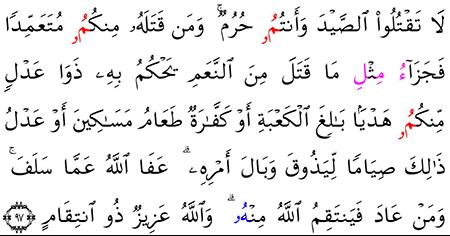 لَا تَقْتُلُوا۟ ٱلصَّيْدَ وَأَنتُمُۥ حُرُمٌۭ ۚ وَمَن قَتَلَهُۥ مِنكُمُۥ مُتَعَمِّدًۭا
فَجَزَآءُ مِثْلِ مَا قَتَلَ مِنَ ٱلنَّعَمِ يَحْكُمُ بِهِۦ ذَوَا عَدْلٍۢ
مِّنكُمُۥ هَدْيَۢا بَٰلِغَ ٱلْكَعْبَةِ أَوْ كَفَّٰرَةٌۭ طَعَامُ مَسَٰكِينَ أَوْ عَدْلُ
ذَٰلِكَ صِيَامًۭا لِّيَذُوقَ وَبَالَ أَمْرِهِۦ ۗ عَفَا ٱللَّهُ عَمَّا سَلَفَ ۚ
وَمَنْ عَادَ فَيَنتَقِمُ ٱللَّهُ مِنْهُۥ ۗ وَٱللَّهُ عَزِيزٌۭ ذُو ٱنتِقَامٍۢ ٩٧